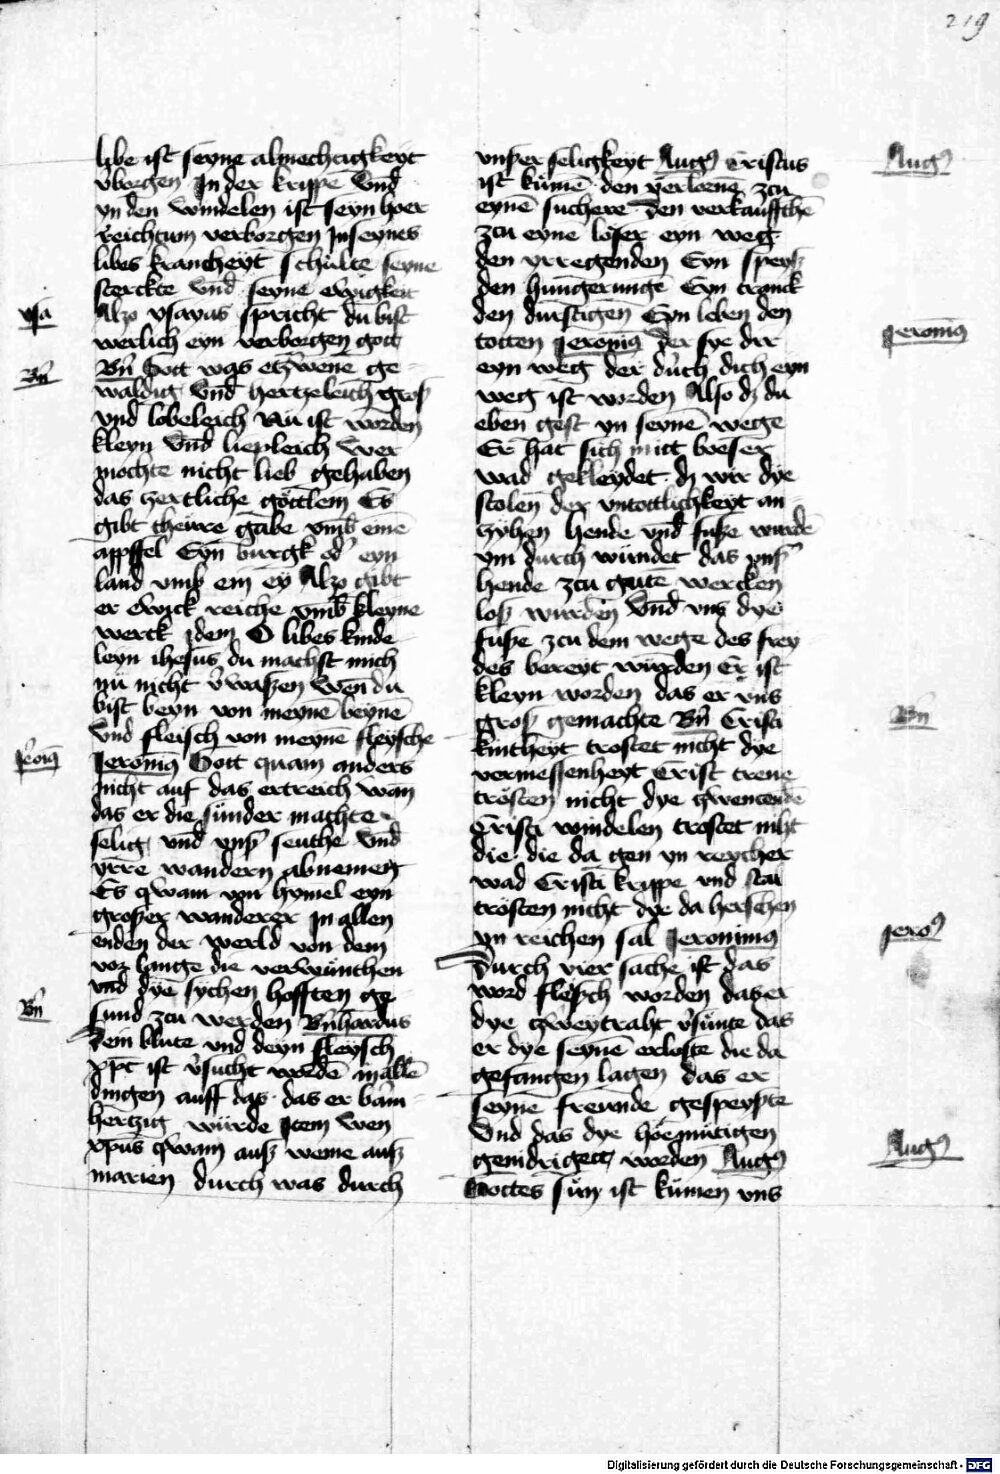 219
libe ist seyne almechtigkeyt
v̕borgen Jn der krippe Vnd
yn den windelen ist seyn hoer
Reichtum verborgen Jn seynes
libes krancheyt schulte seyne
sterckte vnd seyne ewigkeit
Alzo ysayas spricht du bist
werlich eyn verborgen gott
Bn̄ Gott was etzwene ge
waldig Vnd hertzeleich gros
vnd lobeleich Nu ist worden
kleyn Vnd liepleich Wer
mochte nicht lieb gehaben
das zertliche gottlem Es
gibt theure gabe vmb eine
appffel Eyn burgk od̕ eyn
land vmb em ey Alzo gibt
er Ewick reiche vmb kleyne
werck jdem O libes kinde
leyn ihesus du machst mich
nu nicht v̕waszen Wen du
bist beyn von meyne beyne
Vnd fleisch von meyne fleysche
Jeronim9 Gott quam anders
nicht auf das ertreich wan
das er die sunder machte
selig vnd vns̕ seuche vnd
yrre wandern abnemen
Es qwam von hymel eyn
groszer wanderer Jn allen
enden der werld von dem
vor lange die verwunthen
vnd dye sychen hofften ge
sund zcu werden Bn̄hardus
Dein klute vnd deyn fleysch
xp̄c ist v̕sucht wordē in allē
dingen auff das das er bam
hertzig wurde Jtem Wen
xpūs qwam ausz weme ausz
marien durch was durch
vnszer seligkeyt Aug9 Cristus
ist kumē den verlornē zcu
eynē suchere Den verkauffthē
zcu eyne loser eyn weg
den yrregenden Eyn speysz
den hungerungē Eyn tranck
den durstigen Eyn leben den
totten Jeronim9 Der sye dir
eyn weg der durch dich eyn
weg ist worden Also dz du
eben gest yn seynē wege
Er hat sich mitt boeser
wad gekleydet dz wir dye
stolen der vntottlichkeyt an
zyhen hende vnd fusze wurdē
ym durch wundet das vns̕
hende zcu gute wercken
losz wurden Vnd vns dye
fusze zcu dem wege des frey
des bereyt wurden Er ist
kleyn worden das er vns
grosz gemachte Bn̄ Cristi
kintheyt trostet nicht dye
vermessenheyt Crist trene
trosten nicht dye
Cristi windelen trostet nicht
die die da gen yn reycher
wad Cristi krippe vnd stal
trosten nicht dye da herschen
yn reichen sal Jeronimus
Durch vier sache ist das
word fleysch worden das er
dye zweytraht v̕sunte das
er dye seynē erloste die da
gefangen lagen das er
seynē freunde gespeyszte
Vnd das dye hoemutigen
genidriget worden Aug9
Gottes sun ist kumen vns
ysa
Bn̄
Jeroni9
Bn̄
Aug9
Jeronim9
Bn̄
Jero9
Aug9
Digitalisierung gefördert durch die Deutsche Forschungsgemeinschaft - DFG